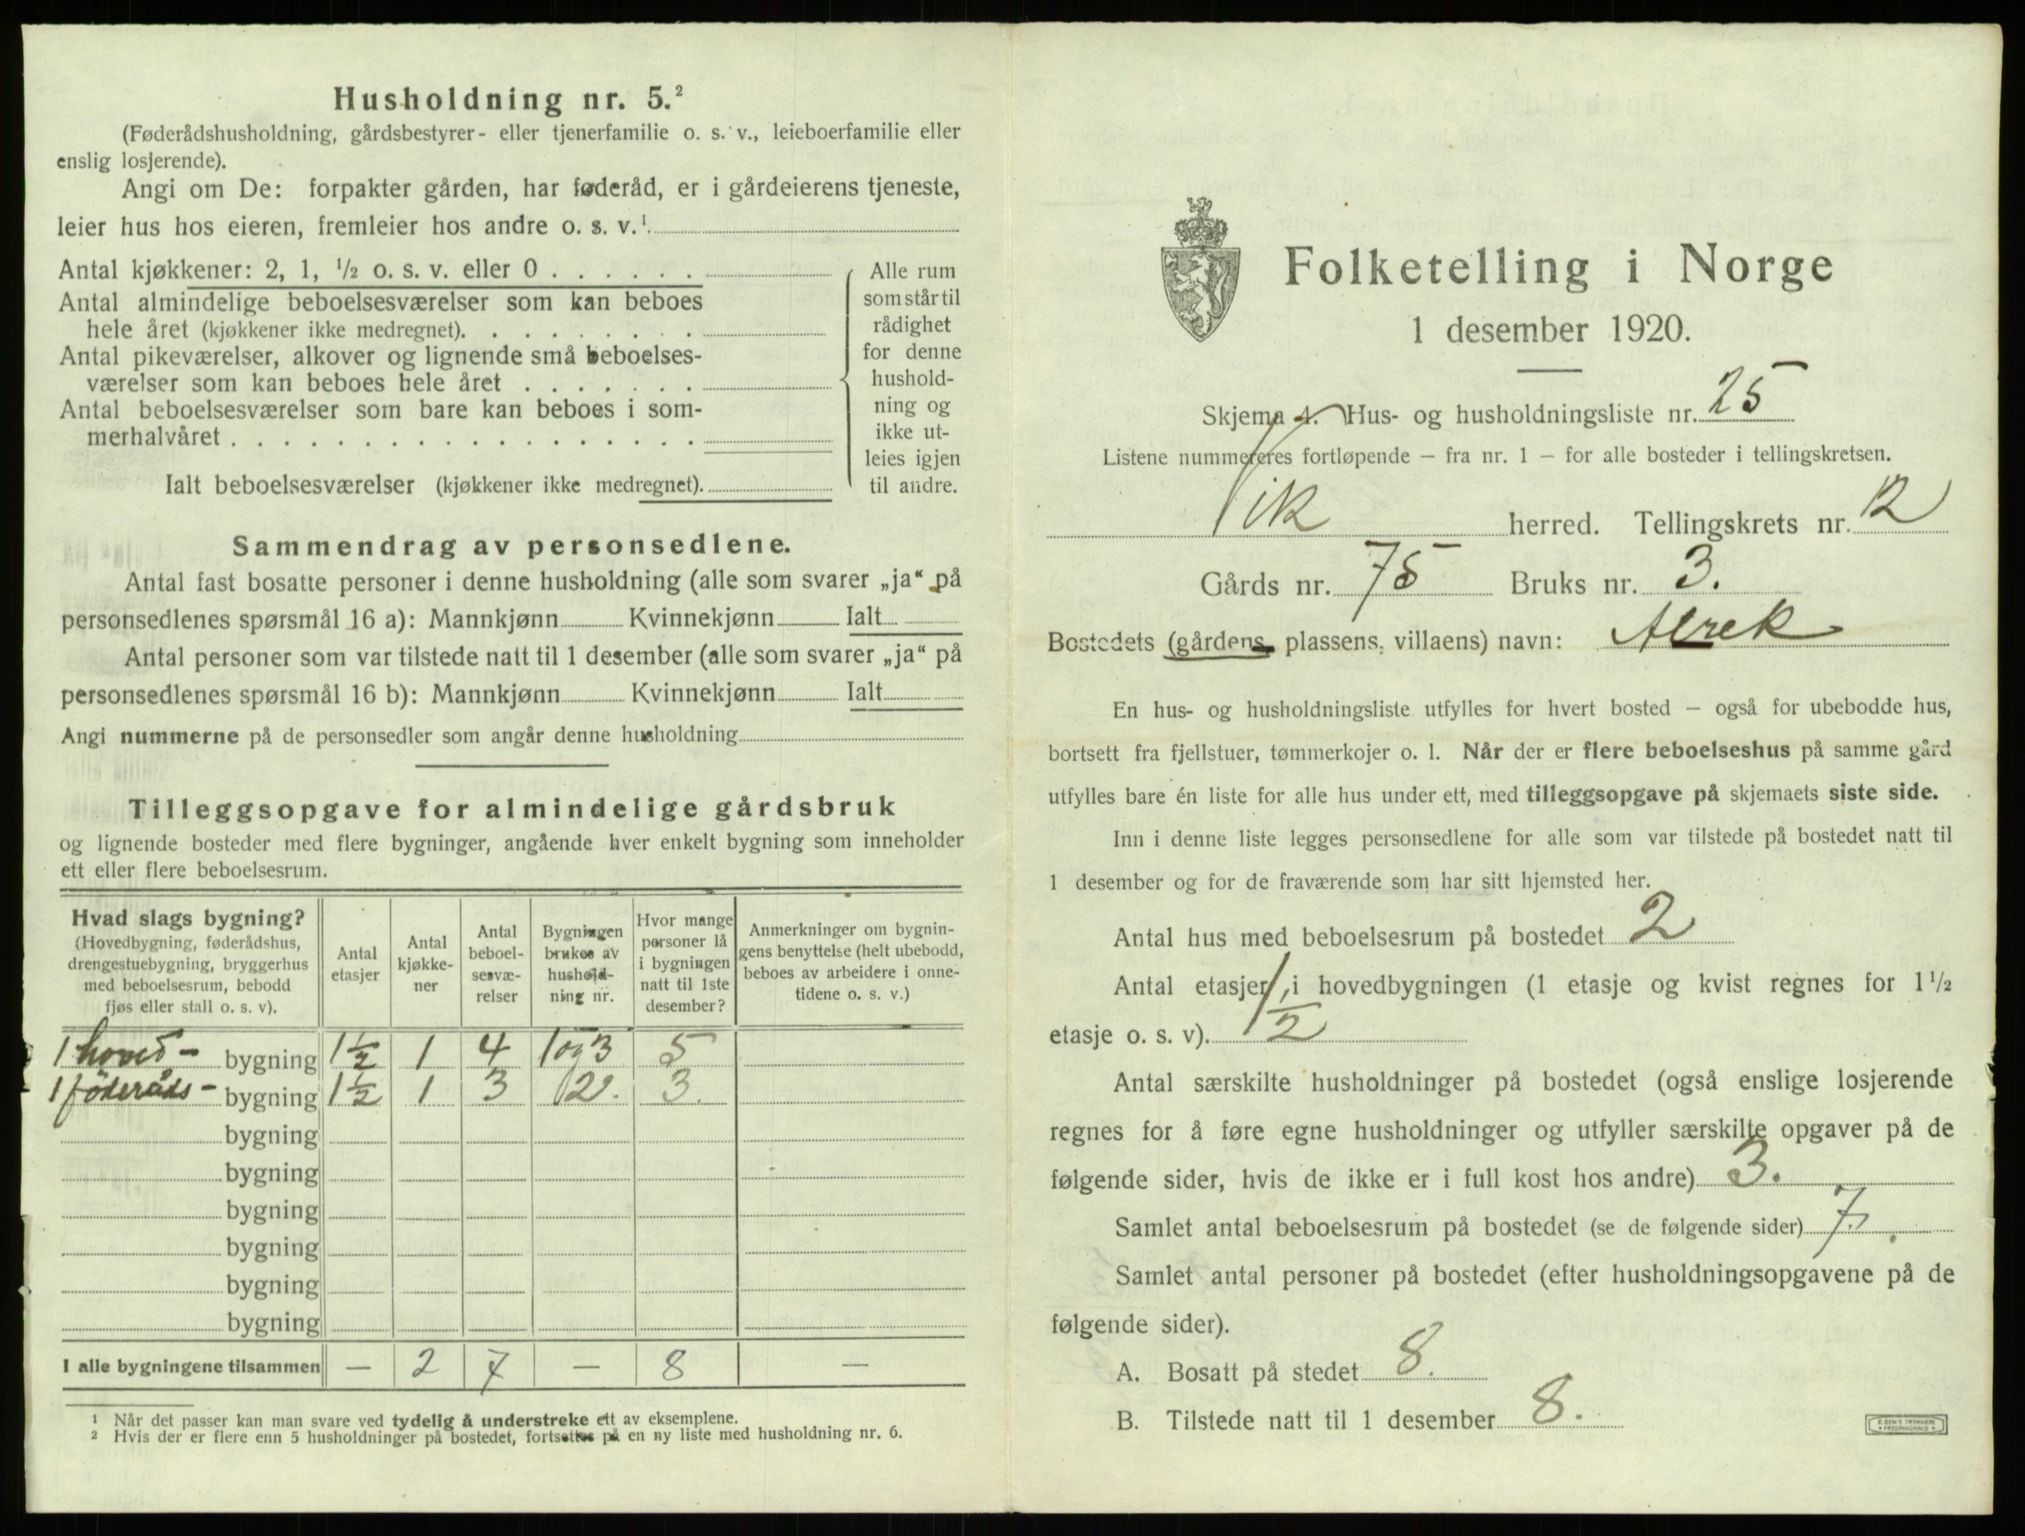 Husholdning nr. 5.²
(Føderådshusholdning, gårdsbestyrer- eller tjenerfamilie o. s. v., leieboerfamilie eller
enslig losjerende).
Angi om De: forpakter gården, har føderåd, er i gårdeierens tjeneste,
leier hus hos eieren, fremleier hos andre o. s. v.¹
Antal kjøkkener: 2, 1, ½ o. s. v. eller 0 . . . . . .
Antal almindelige beboelsesværelser som kan beboes
hele året (kjøkkener ikke medregnet). . . . . . . . .
Antal pikeværelser, alkover og lignende små beboelses-
værelser som kan beboes hele året . . . . . . .
Antal beboelsesværelser som bare kan beboes i som-
merhalvåret . . . . . . . . . . . . . . . . . .
Ialt beboelsesværelser (kjøkkener ikke medregnet).
Alle rum
som står til
rådighet
for denne
hushold-
ning og
ikke ut-
leies igjen
til andre.
Sammendrag av personsedlene.
Antal fast bosatte personer i denne husholdning (alle som svarer „ja“ på
personsedlenes spørsmål 16 a): Mannkjønn Kvinnekjønn Ialt
Antal personer som var tilstede natt til 1 desember (alle som svarer „ja“ på
personsedlenes spørsmål 16 b): Mannkjønn Kvinnekjønn Ialt
Angi nummerne på de personsedler som angår denne husholdning
Tilleggsopgave for almindelige gårdsbruk
og lignende bosteder med flere bygninger, angående hver enkelt bygning som inneholder
ett eller flere beboelsesrum.
Hvad slags bygning?
(Hovedbygning, føderådshus,
drengestuebygning, bryggerhus
med beboelsesrum, bebodd
fjøs eller stall o. s. v).
Antal
etasjer
Antal
kjøkke-
ner
Antal
beboel-
sesvæ-
relser
Bygningen
brukes av
hushold-
ning nr.
Hvor mange
personer lå
i bygningen
natt til 1ste
desember?
Anmerkninger om bygnin-
gens benyttelse (helt ubebodd,
beboes av arbeidere i onne-
tidene o. s. v.)
1 hoved- bygning 1½ 1 4 1 og 3 5
1 föderåds- bygning 1½ 1 3 2. 3.
bygning
bygning
bygning
bygning
bygning
bygning
I alle bygningene tilsammen — 2 7 — 8 —
¹ Når det passer kan man svare ved tydelig å understreke ett av eksemplene.
² Hvis der er flere enn 5 husholdninger på bostedet, fortsettes på en ny liste med husholdning nr. 6.
Folketelling i Norge
1 desember 1920.
Skjema 1. Hus- og husholdningsliste nr. 25
Listene nummereres fortløpende – fra nr. 1 – for alle bosteder i tellingskretsen.
Vik herred. Tellingskrets nr. 12
Gårds nr. 75 Bruks nr. 3.
Bostedets (gårdens, plassens, villaens) navn: Alrek
En hus- og husholdningsliste utfylles for hvert bosted – også for ubebodde hus,
bortsett fra fjellstuer, tømmerkojer o. l. Når der er flere beboelseshus på samme gård
utfylles bare én liste for alle hus under ett, med tilleggsopgave på skjemaets siste side.
Inn i denne liste legges personsedlene for alle som var tilstede på bostedet natt til
1 desember og for de fraværende som har sitt hjemsted her.
Antal hus med beboelsesrum på bostedet 2
Antal etasjer i hovedbygningen (1 etasje og kvist regnes for 1½
etasje o. s. v). 1½
Antal særskilte husholdninger på bostedet (også enslige losjerende
regnes for å føre egne husholdninger og utfyller særskilte opgaver på de
følgende sider, hvis de ikke er i full kost hos andre) 3.
Samlet antal beboelsesrum på bostedet (se de følgende sider) 7.
Samlet antal personer på bostedet (efter husholdningsopgavene på de
følgende sider).
A. Bosatt på stedet 8.
B. Tilstede natt til 1 desember 8.